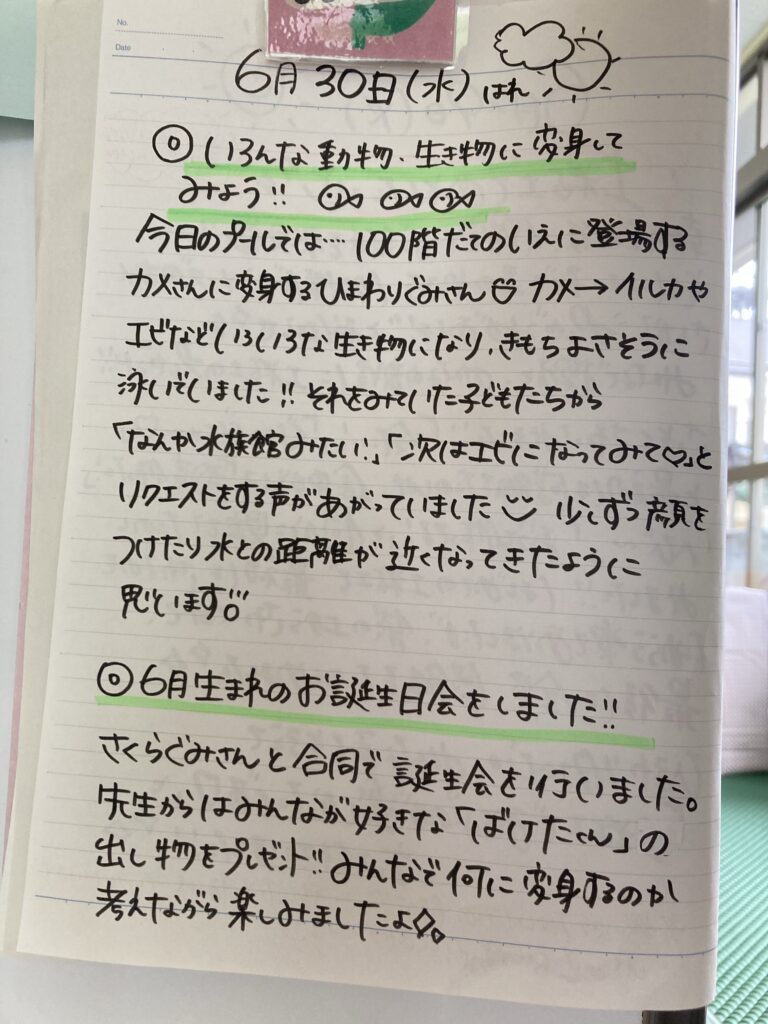 No.
Date
6月30日(水) はれ
◎ いろんな動物、生き物に変身して
みよう!!
今日のプールでは…100階だてのいえに登場する
カメさんに変身するひまわりぐみさん カメ→イルカや
エビなどいろいろな生き物になり、きもちよさそうに
泳いでいました!! それをみていた子どもたちから
「なんか水族館みたい!」「次はエビになってみて♡」と
リクエストをする声があがっていました 少しずつ顔を
つけたり水との距離が近くなってきたように
思います!。
◎ 6月生まれのお誕生日会をしました!!
さくらぐみさんと合同で誕生会を行いました。
先生からはみんなが好きな「ばけたくん」の
出し物をプレゼント!! みんなで何に変身するのか
考えながら楽しみましたよ◇。